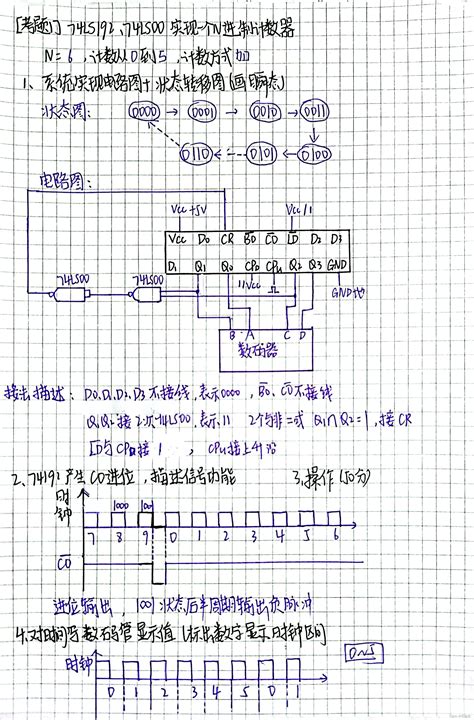 [考题] 74LS192、74LS00 实现一个N进制计数器
N = 6，计数从0到5，计数方式 加
1、系统实现电路图+状态转移图(画暂态)
状态图：
0000 → 0001 → 0010 → 0011
0110 ← 0101 ← 0100
电路图：
Vcc +5V Vcc/1
Vcc D0 CR B̅O̅ C̅O̅ L̅D̅ D2 D3
D1 Q1 Q0 CPD CPU Q2 Q3 GND
74LS00 74LS00
1/Vcc
GND 地
B A C D
数码器
接法描述：D0、D1、D2、D3不接线，表示0000，B̅O̅、C̅O̅不接线
Q1Q2接2次74LS00，表示11 2个与非=或 Q1∩Q2=1，接CR
L̅D̅与CPD接1，CPU接上升沿
2、74192产生CO进位，描述信号功能 3、操作(50分)
时钟
1000 1001
7 8 9 0 1 2 3 4 5 6
C̅O̅
进位输出，1001状态后半周期输出负脉冲
4、对时间写数码管显示值(标出数字显示时钟区间)
时钟
0 1 2 3 4 5 0 1